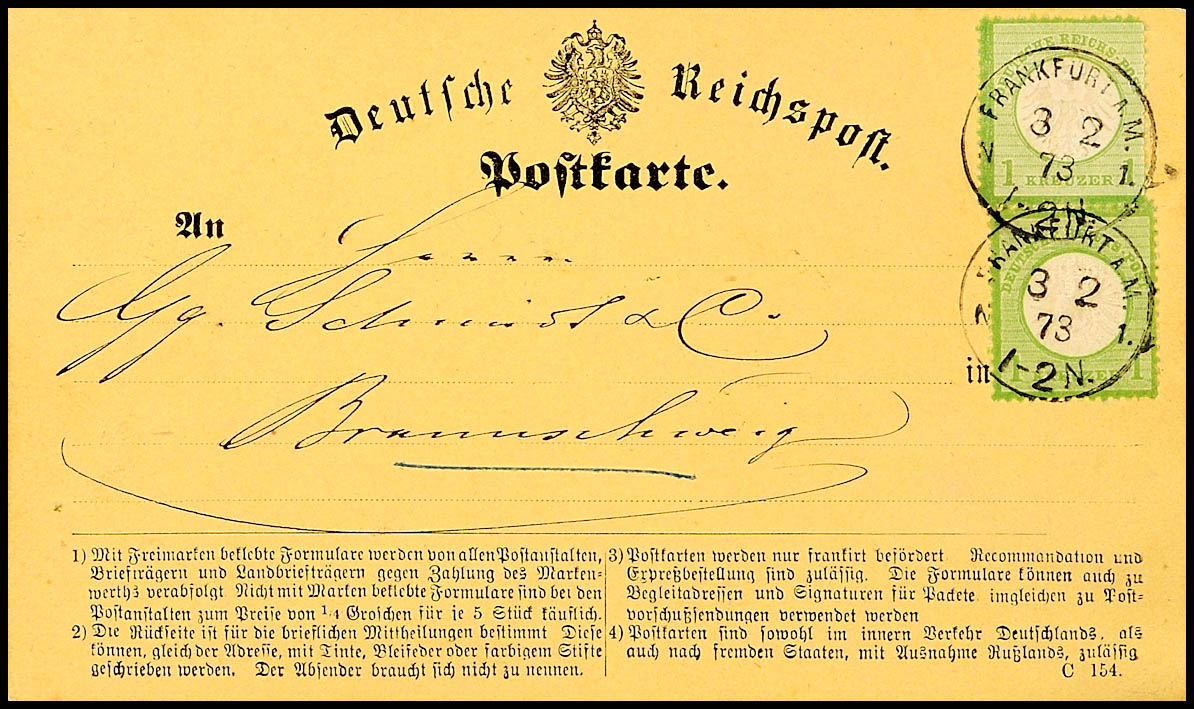 Deutsche Reichspost.
Postkarte.
An
Herrn
Gg. Schmidt & C°
in
Braunschweig
DEUTSCHE REICHS-POST
1 KREUZER 1
FRANKFURT A.M.
3 2
73
1.
1-2N.
DEUTSCHE REICHS-POST
1 KREUZER 1
FRANKFURT A.M.
3 2
73
1.
1-2N.
1) Mit Freimarken beklebte Formulare werden von allen Postanstalten,
Briefträgern und Landbriefträgern gegen Zahlung des Marken-
werths verabfolgt. Nicht mit Marken beklebte Formulare sind bei den
Postanstalten zum Preise von 1/4 Groschen für je 5 Stück käuflich.
2) Die Rückseite ist für die brieflichen Mittheilungen bestimmt Diese
können, gleich der Adresse, mit Tinte, Bleifeder oder farbigem Stifte
geschrieben werden. Der Absender braucht sich nicht zu nennen.
3) Postkarten werden nur frankirt befördert Recommandation und
Expreßbestellung sind zulässig. Die Formulare können auch zu
Begleitadressen und Signaturen für Packete imgleichen zu Post-
vorschußsendungen verwendet werden
4) Postkarten sind sowohl im innern Verkehr Deutschlands, als
auch nach fremden Staaten, mit Ausnahme Rußlands, zulässig
C 154.